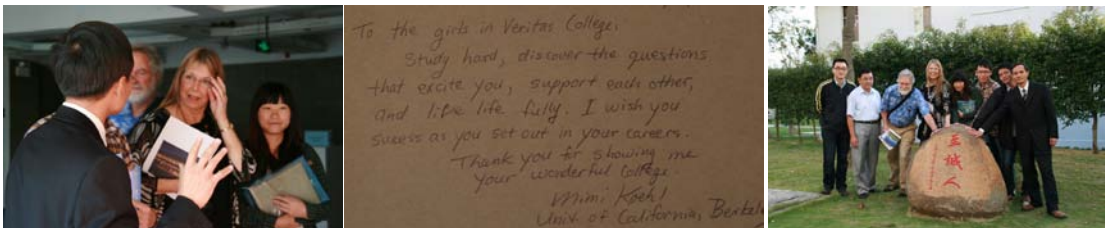 To the girls in Veritas College,
Study hard, discover the questions
that excite you, support each other,
and live life fully. I wish you
success as you set out in your careers.
Thank you for showing me
your wonderful College.
Mimi Koehl
Univ. of California, Berkeley
至诚人